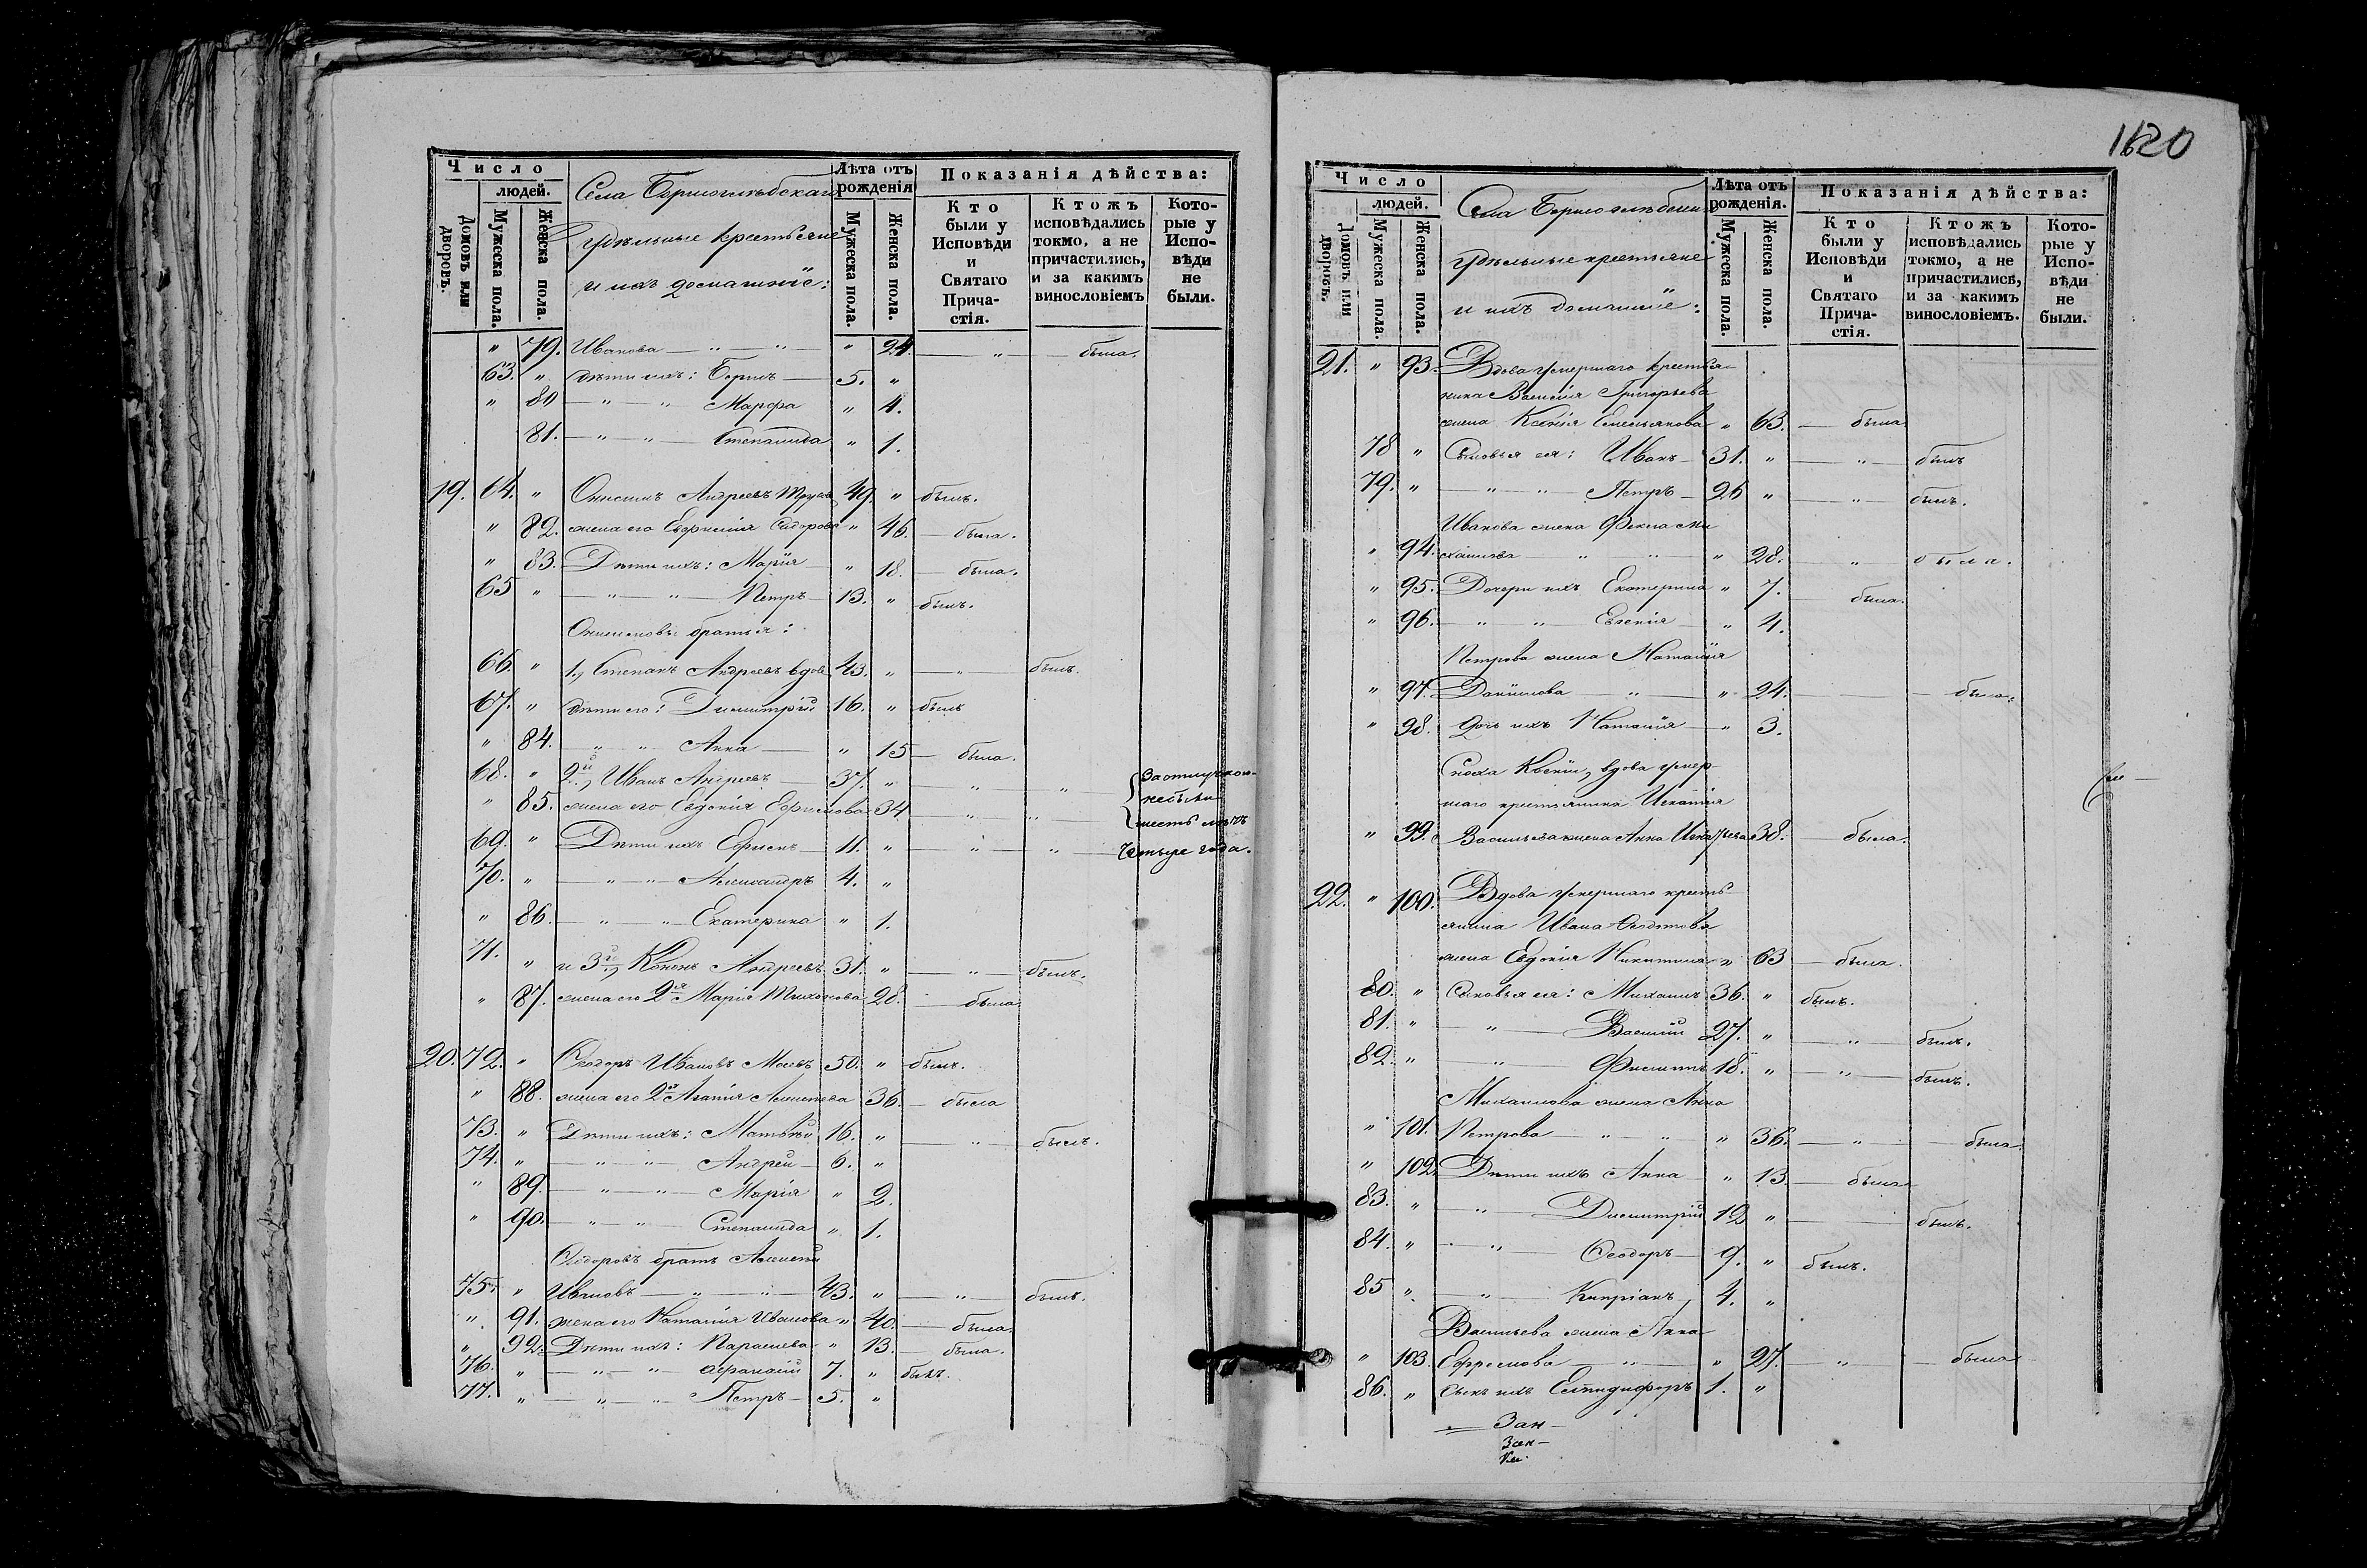 Число
людей.
Домовъ или дворовъ.
Мужеска пола.
Женска пола.
Села Борисоглѣбскаго
удѣльные крестьяне
и ихъ домашніе:
Лѣта отъ рожденія
Мужеска пола.
Женска пола.
Показанія дѣйства:
Кто были у Исповѣди и Святаго Причастія.
Ктожъ исповѣдались токмо, а не причастились, и за какимъ винословіемъ
Которые у Исповѣди не были.
" 79. Иванова — " — " " 24. — " — была.
63. " Дѣти ихъ: Борисъ — 5. "
" 80 — " — " — Марфа " 4.
81. — " — " — Степанида " 1.
19. 64. " Онисимъ Андреевъ 49. " былъ.
" 82. жена его Евфимія Сидорова " 46. — была.
" 83. Дѣти ихъ: Марія — " 18. — была.
65 " — " — " — Петръ — 13. " былъ.
Онисимовы братья:
66. " 1, Степанъ Андреевъ вдов 43. " — " — былъ.
67. " Дѣти его: Димитрій 16. " былъ
" 84. — " — " — Анна — " 15 — была.
68. " 2й, Иванъ Андреевъ — 37. " — " — "
" 85. жена его Евдокія Ефимова 34 — " — "
За отлучкою
не были
шесть лѣтъ
69. " Дѣти ихъ Ефимъ — 11. " — " — " — Четыре года.
70. " — " — " — Александръ 4. "
" 86. — " — " — Екатерина " 1.
71. " и 3й, Кононъ Андреевъ 31. " — " — былъ.
" 87. жена его 2я Марія Тихонова 28. — была
20. 72. " Ѳеодоръ Ивановъ 50. " былъ.
" 88. жена его 2я Агапія Алексѣева 36. — была
73. " Дѣти ихъ: Матвѣй 16. " — " — былъ.
74. " — " — " — Андрей — 6. "
" 89. — " — " — Марія " 2.
" 90. — " — " — Степанида " 1.
Ѳеодоровъ братъ Алексѣй
75. " Ивановъ — " — " — 43. " — " — былъ.
" 91. жена его Наталія Иванова " 40. — была.
" 92. Дѣти ихъ: Параскева " 13. — была.
76. " — " — " — Афанасій 7. " былъ.
77. " — " — " Петръ — 5. "
1620
Число
людей.
Домовъ или дворовъ.
Мужеска пола.
Женска пола.
Села Борисоглѣбскаго
удѣльные крестьяне
и ихъ домашніе:
Лѣта отъ рожденія.
Мужеска пола.
Женска пола.
Показанія дѣйства:
Кто были у Исповѣди и Святаго Причастія.
Ктожъ исповѣдались токмо, а не причастились, и за какимъ винословіемъ.
Которые у Исповѣди не были.
21. " 93. Вдова умершаго крестья-
нина Василія Григорьева
жена Ксенія Емельянова " 63. — была
78 " Сыновья ея: Иванъ — 31. " — " — былъ
79. " — " — " — Петръ — 26 " — " — былъ.
Иванова жена Фекла Ми
" 94. хаилова — " — " — " 28. — " — была.
" 95. Дочери ихъ Екатерина " 7. — была.
" 96. — " — " — Евгенія — " 4.
Петрова жена Наталія
" 97. Даніилова — " — " 24. — была.
" 98. дочь ихъ Наталія — " 3.
Сноха Ксеніи, вдова умер-
шаго крестьянина Игнатія
" 99. Васильева жена Анна 38. — была.
22. " 100. Вдова умершаго кресть-
янина Ивана
жена Евдокія Никитина " 63 — была.
80. " Сыновья ея: Михаилъ 36. " былъ.
81. " — " — Василій 27. " — " — былъ.
82. " — " — Филиппъ 18. " — " — былъ.
Михаилова жена Анна
" 101. Петрова — " — " " 36. — " — была
" 102. Дѣти ихъ Анна — " 13. — была
83. " — " — Димитрій 12 " — былъ.
84. " — " — Ѳеодоръ — 9. " былъ.
85 " — " — Кипріанъ, 4. "
Васильева жена Анна
" 103. Ефремова — " — " 27. — " — была
86. " сынъ ихъ Елпидифоръ 1. "